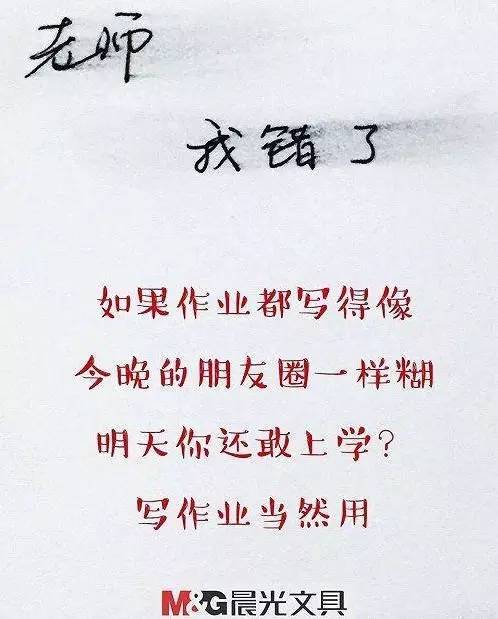 老师
我错了
如果作业都写得像
今晚的朋友圈一样糊
明天你还敢上学?
写作业当然用
M&G晨光文具